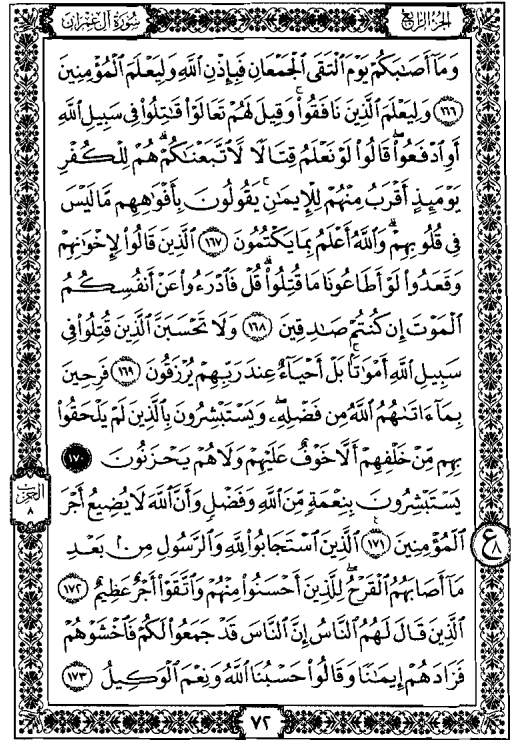 الجزء الرابع
سورة آل عمران
وَمَآ أَصَٰبَكُمْ يَوْمَ ٱلْتَقَى ٱلْجَمْعَانِ فَبِإِذْنِ ٱللَّهِ وَلِيَعْلَمَ ٱلْمُؤْمِنِينَ
١٦٦ وَلِيَعْلَمَ ٱلَّذِينَ نَافَقُوا۟ وَقِيلَ لَهُمْ تَعَالَوْا۟ قَٰتِلُوا۟ فِى سَبِيلِ ٱللَّهِ
أَوِ ٱدْفَعُوا۟ قَالُوا۟ لَوْ نَعْلَمُ قِتَالًا لَّٱتَّبَعْنَٰكُمْ هُمْ لِلْكُفْرِ
يَوْمَئِذٍ أَقْرَبُ مِنْهُمْ لِلْإِيمَٰنِ يَقُولُونَ بِأَفْوَٰهِهِم مَّا لَيْسَ
فِى قُلُوبِهِمْ وَٱللَّهُ أَعْلَمُ بِمَا يَكْتُمُونَ ١٦٧ ٱلَّذِينَ قَالُوا۟ لِإِخْوَٰنِهِمْ
وَقَعَدُوا۟ لَوْ أَطَاعُونَا مَا قُتِلُوا۟ قُلْ فَٱدْرَءُوا۟ عَنْ أَنفُسِكُمُ
ٱلْمَوْتَ إِن كُنتُمْ صَٰدِقِينَ ١٦٨ وَلَا تَحْسَبَنَّ ٱلَّذِينَ قُتِلُوا۟ فِى
سَبِيلِ ٱللَّهِ أَمْوَٰتًۢا بَلْ أَحْيَآءٌ عِندَ رَبِّهِمْ يُرْزَقُونَ ١٦٩ فَرِحِينَ
بِمَآ ءَاتَىٰهُمُ ٱللَّهُ مِن فَضْلِهِۦ وَيَسْتَبْشِرُونَ بِٱلَّذِينَ لَمْ يَلْحَقُوا۟
بِهِم مِّنْ خَلْفِهِمْ أَلَّا خَوْفٌ عَلَيْهِمْ وَلَا هُمْ يَحْزَنُونَ ١٧٠
يَسْتَبْشِرُونَ بِنِعْمَةٍ مِّنَ ٱللَّهِ وَفَضْلٍ وَأَنَّ ٱللَّهَ لَا يُضِيعُ أَجْرَ
ٱلْمُؤْمِنِينَ ١٧١ ٱلَّذِينَ ٱسْتَجَابُوا۟ لِلَّهِ وَٱلرَّسُولِ مِنۢ بَعْدِ
مَآ أَصَابَهُمُ ٱلْقَرْحُ لِلَّذِينَ أَحْسَنُوا۟ مِنْهُمْ وَٱتَّقَوْا۟ أَجْرٌ عَظِيمٌ ١٧٢
ٱلَّذِينَ قَالَ لَهُمُ ٱلنَّاسُ إِنَّ ٱلنَّاسَ قَدْ جَمَعُوا۟ لَكُمْ فَٱخْشَوْهُمْ
فَزَادَهُمْ إِيمَٰنًا وَقَالُوا۟ حَسْبُنَا ٱللَّهُ وَنِعْمَ ٱلْوَكِيلُ ١٧٣
الحزب
٨
ع
٨
٧٢